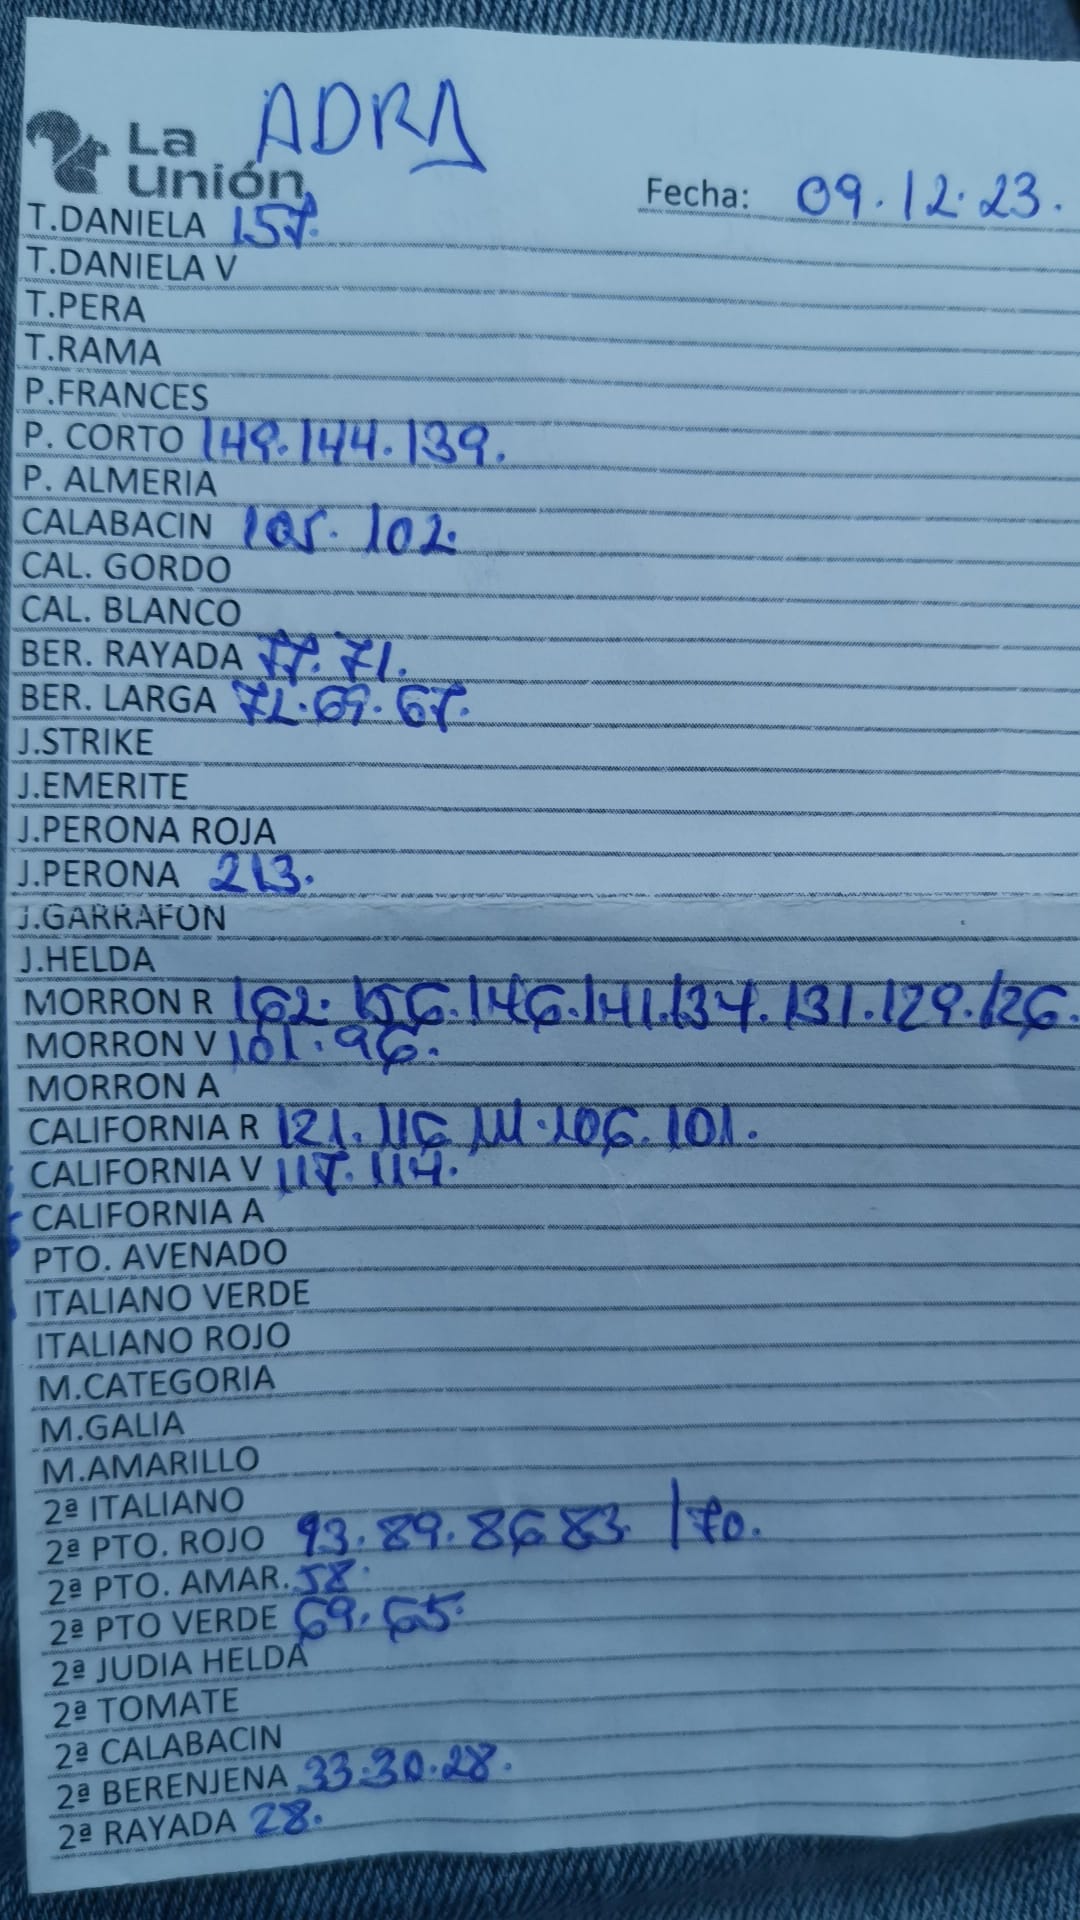 ADRA
La
Unión
Fecha: 09.12.23.
T.DANIELA 157.
T.DANIELA V
T.PERA
T.RAMA
P.FRANCES
P. CORTO 149.144.139.
P. ALMERIA
CALABACIN 105. 102.
CAL. GORDO
CAL. BLANCO
BER. RAYADA 77. 71.
BER. LARGA 72.69.67.
J.STRIKE
J.EMERITE
J.PERONA ROJA
J.PERONA 213.
J.GARRAFON
J.HELDA
MORRON R 162. 156.146.141.134.131.129.126.
MORRON V 101.96.
MORRON A
CALIFORNIA R 121. 116 111.106.101.
CALIFORNIA V 117. 114.
CALIFORNIA A
PTO. AVENADO
ITALIANO VERDE
ITALIANO ROJO
M.CATEGORIA
M.GALIA
M.AMARILLO
2ª ITALIANO
2ª PTO. ROJO 93.89.86 83. /70.
2ª PTO. AMAR. 58.
2ª PTO VERDE 69.65.
2ª JUDIA HELDA
2ª TOMATE
2ª CALABACIN
2ª BERENJENA 33.30.28.
2ª RAYADA 28.